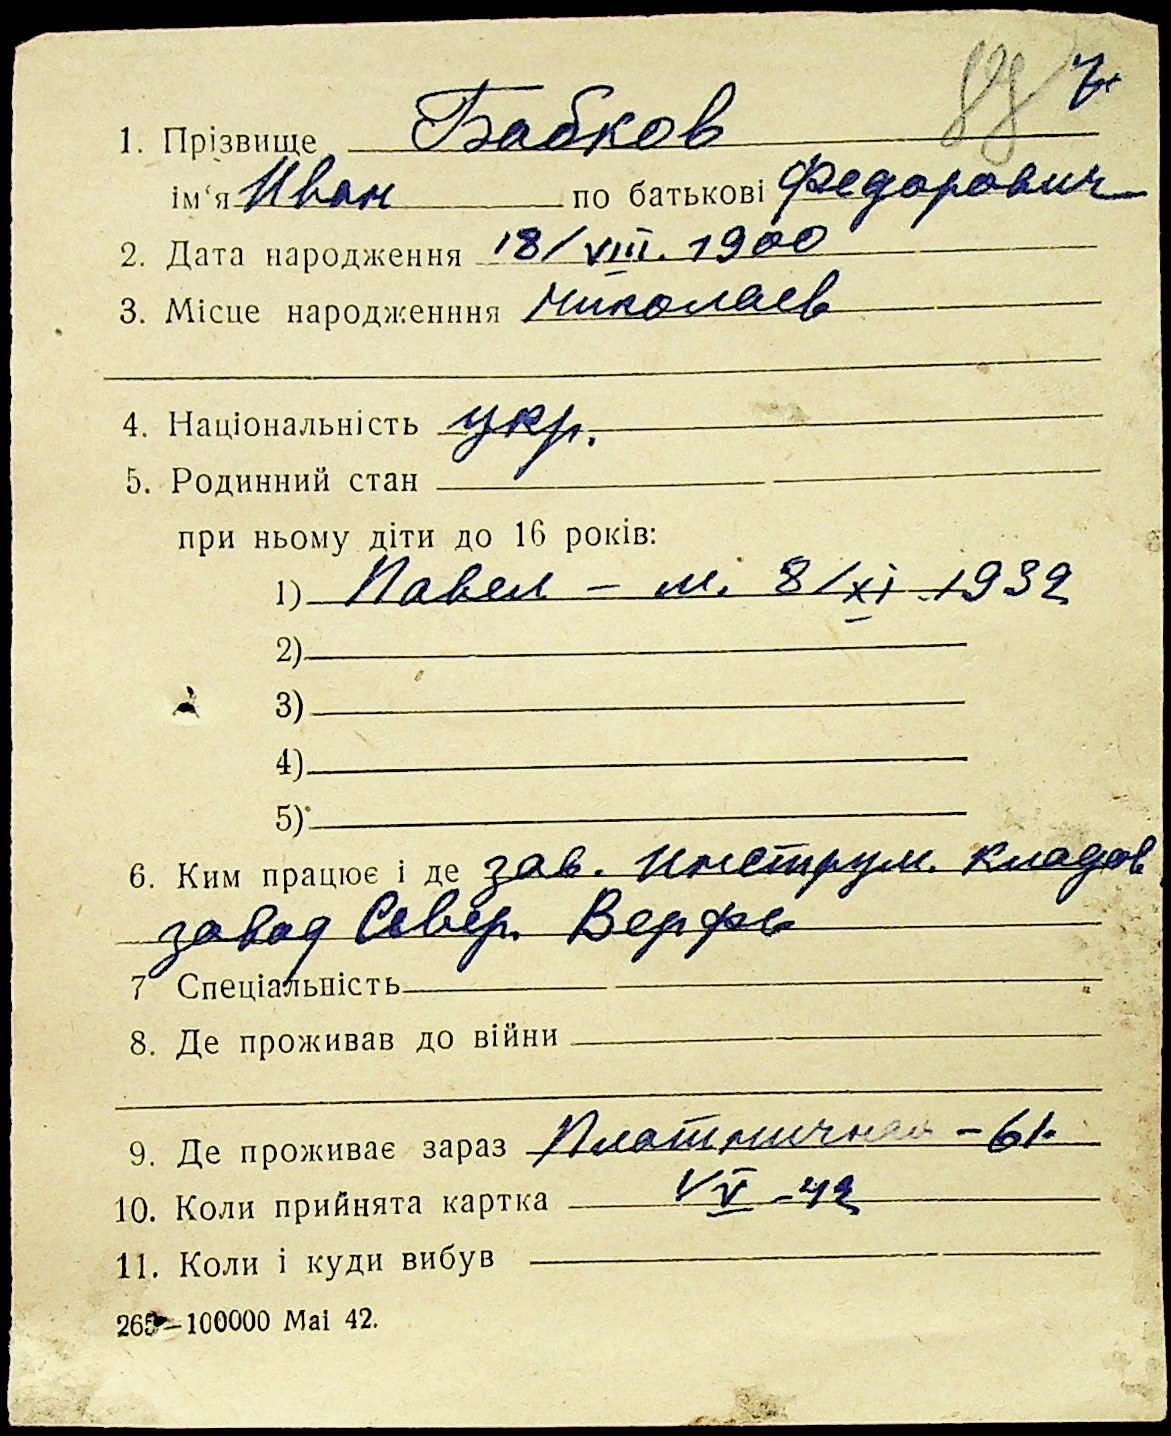 1. Прізвище Бабков
ім'я Иван по батькові Федорович
2. Дата народження 18/VIII. 1900
3. Місце народженння Николаев
4. Національність укр.
5. Родинний стан
при ньому діти до 16 років:
1) Павел – м. 8/XI 1932
2)
3)
4)
5)
6. Ким працює і де зав. Инструм. кладов.
завод Север. Верфь
7 Спеціальність
8. Де проживав до війни
9. Де проживає зараз Плотничная – 61.
10. Коли прийнята картка V – 42
11. Коли і куди вибув
265–100000 Mai 42.